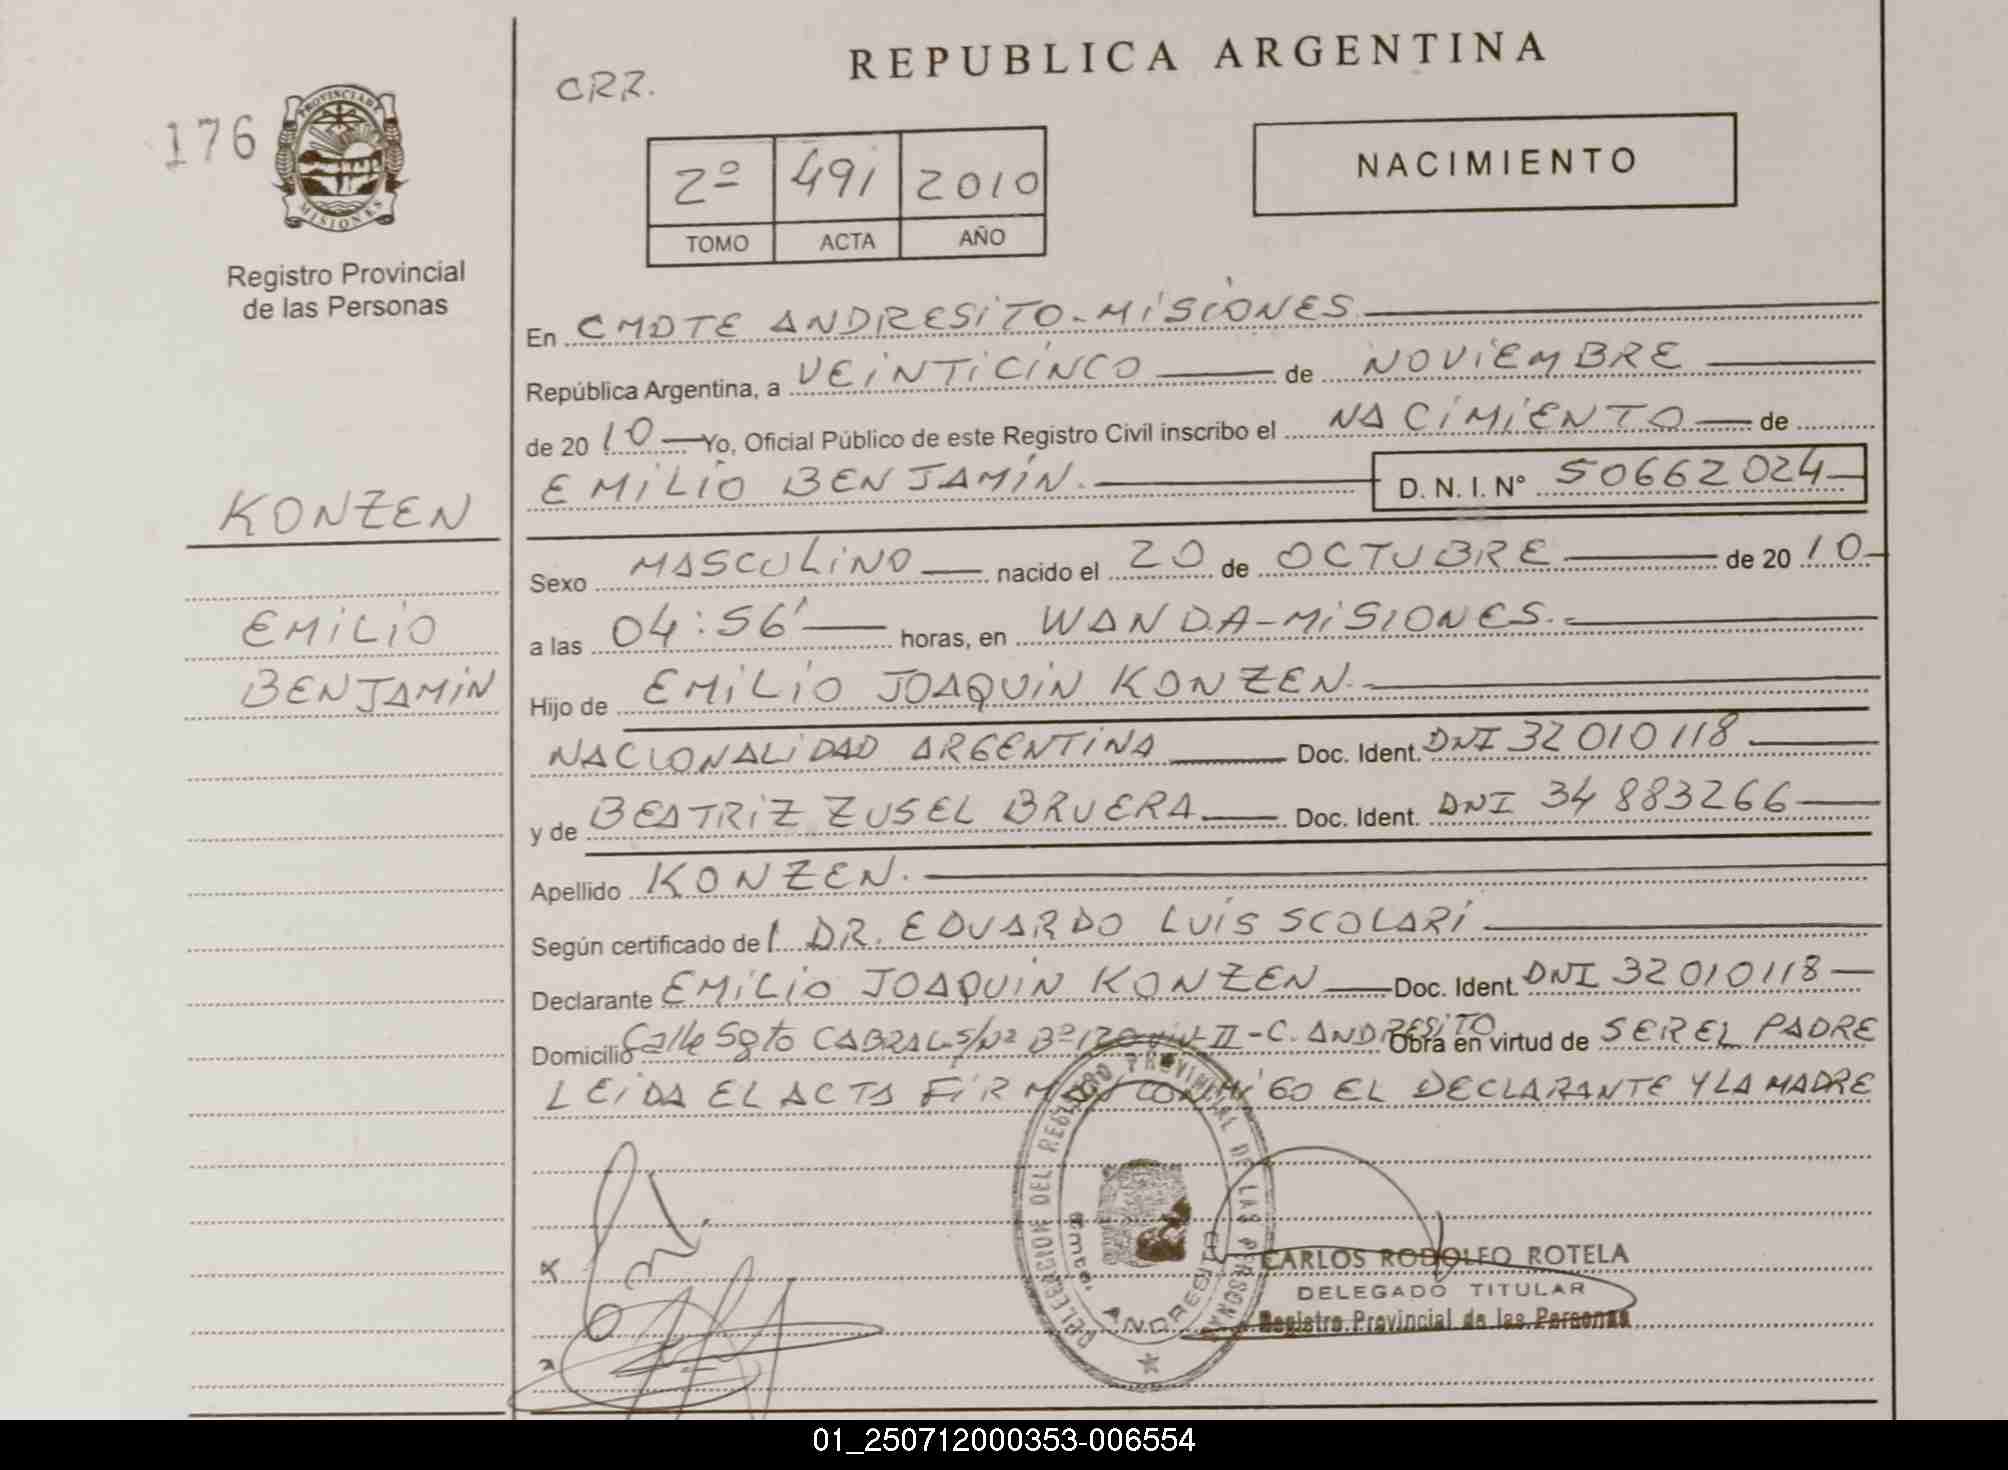 REPUBLICA ARGENTINA
CRR.
176
PROVINCIA DE
MISIONES
Registro Provincial
de las Personas
2º 491 2010
TOMO ACTA AÑO
NACIMIENTO
En CMDTE ANDRESITO-MISIONES
República Argentina, a VEINTICINCO de NOVIEMBRE
de 2010 Yo, Oficial Público de este Registro Civil inscribo el NACIMIENTO de
EMILIO BENJAMIN. D. N. I. Nº 50662024
KONZEN
EMILIO
BENJAMIN
Sexo MASCULINO nacido el 20 de OCTUBRE de 2010
a las 04:56' horas, en WANDA-MISIONES.
Hijo de EMILIO JOAQUIN KONZEN.
NACIONALIDAD ARGENTINA Doc. Ident. DNI 32010118
y de BEATRIZ ZUSEL BRUERA Doc. Ident. DNI 34883266
Apellido KONZEN.
Según certificado del DR. EDUARDO LUIS SCOLARI
Declarante EMILIO JOAQUIN KONZEN Doc. Ident. DNI 32010118
Domicilio Calle Sgto CABRAL S/Nº Bº 120 viv II - C. ANDRESITO Obra en virtud de SER EL PADRE
LEIDA EL ACTA FIRMAN CONMIGO EL DECLARANTE Y LA MADRE
DELEGACION DEL REGISTRO PROVINCIAL DE LAS PERSONAS
Cmte. ANDRESITO
CARLOS RODOLFO ROTELA
DELEGADO TITULAR
Registro Provincial de las Personas
01_250712000353-006554